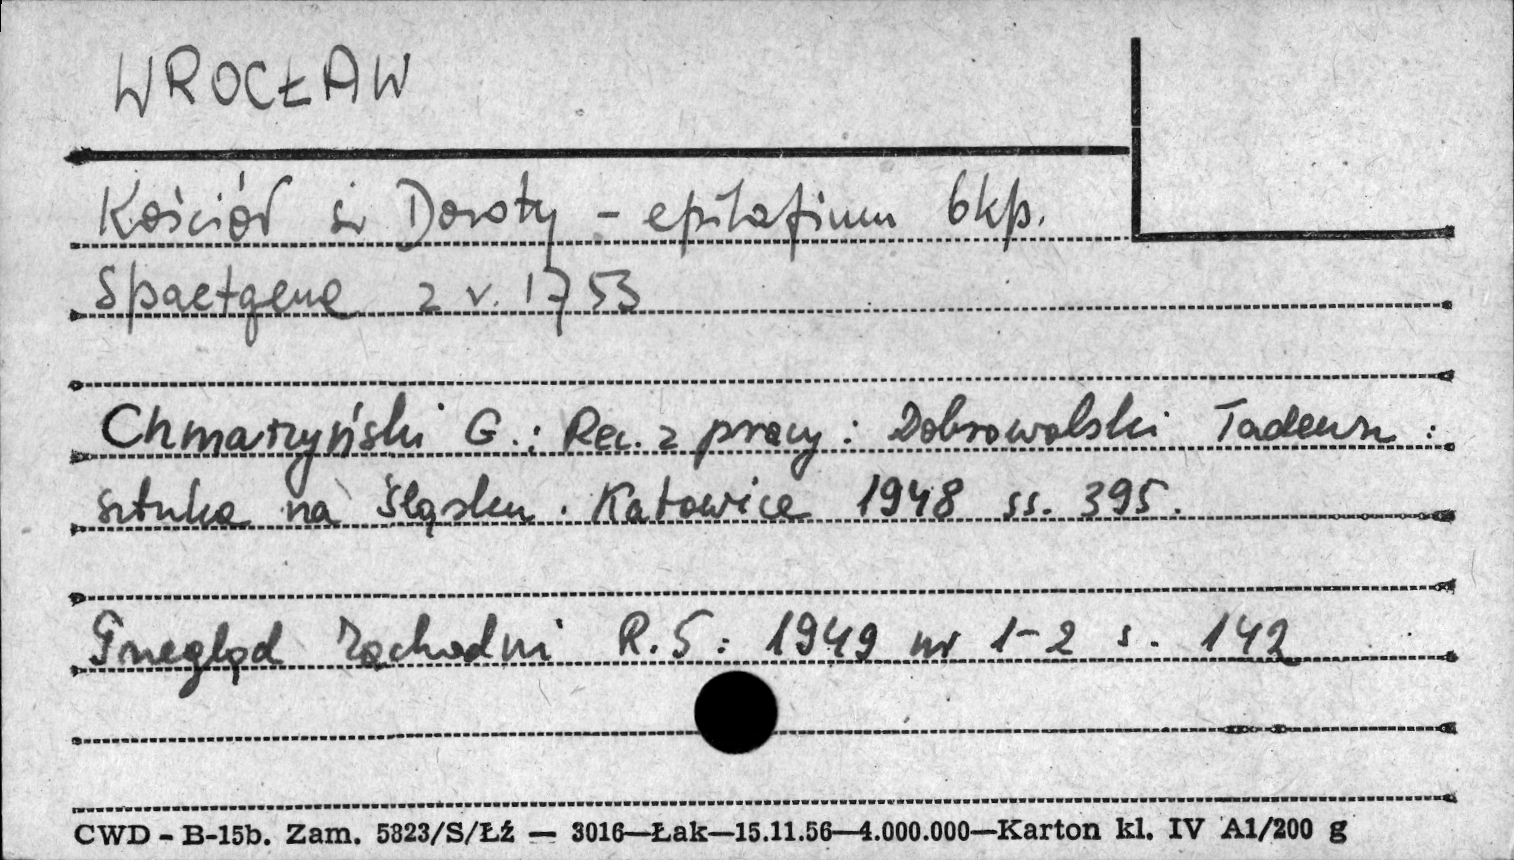 WROCŁAW
Kościół św Doroty - epitafium bkp.
Spaetgena z r. 1753
Chmarzyński G.: Rec. z pracy: Dobrowolski Tadeusz:
sztuka na Śląsku. Katowice 1948 ss. 395.
Przegląd Zachodni R.5: 1949 nr 1-2 s. 142
CWD - B-15b. Zam. 5823/S/Łź — 3016—Łak—15.11.56—4.000.000—Karton kl. IV A1/200 g